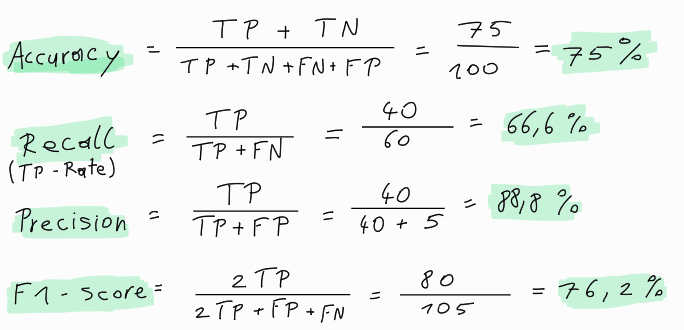 Accuracy = TP + TN / TP + TN + FN + FP = 75 / 100 = 75%
Recall = TP / TP + FN = 40 / 60 = 66,6 %
(TP - Rate)
Precision = TP / TP + FP = 40 / 40 + 5 = 88,8 %
F1 - score = 2 TP / 2 TP + FP + FN = 80 / 105 = 76,2 %